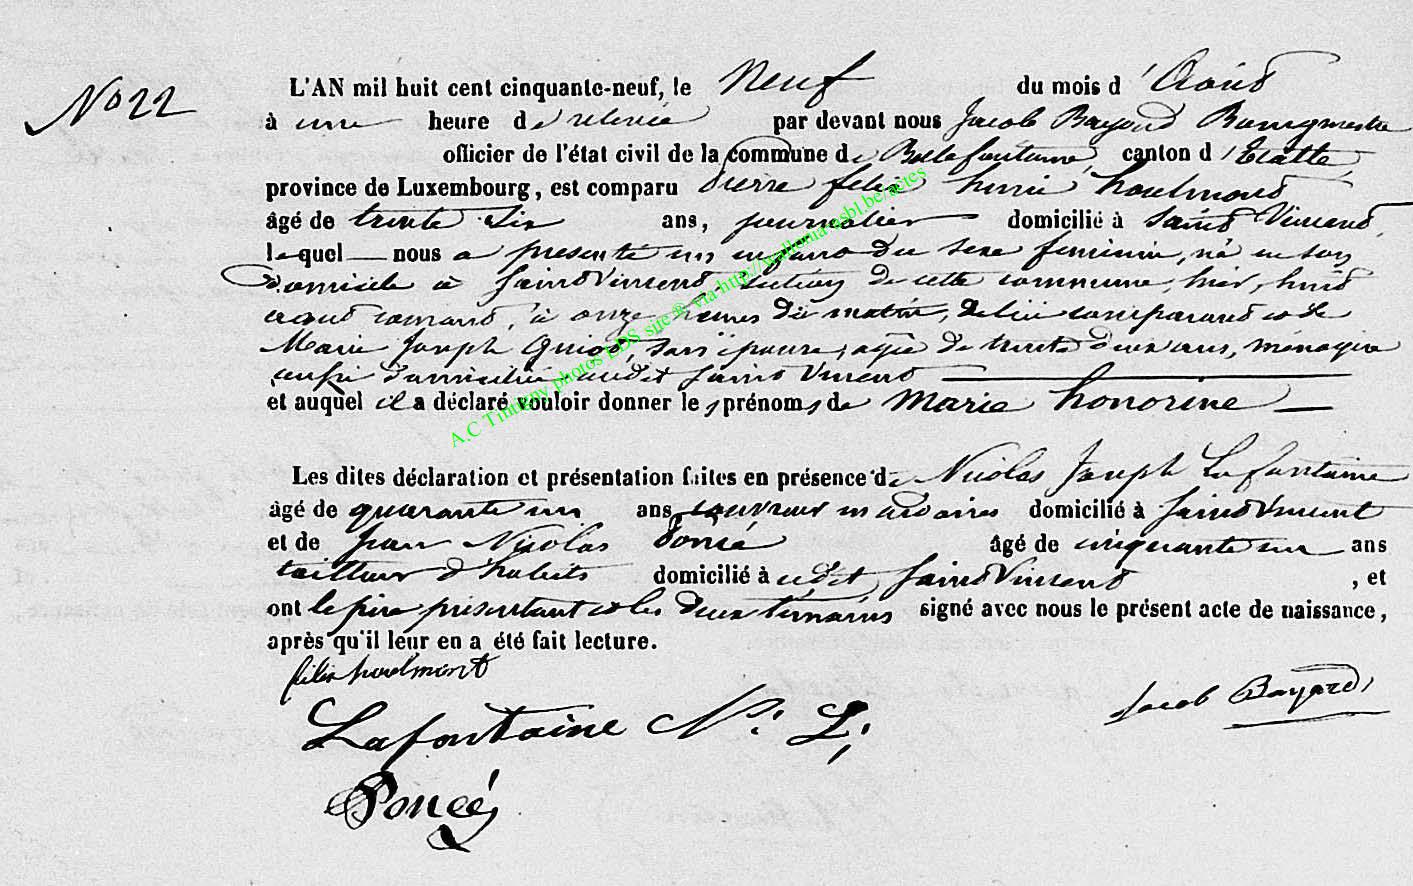 No 22
L'AN mil huit cent cinquante-neuf, le Neuf du mois d'Août
à une heure de relevée par devant nous Jacob Bayard Bourgmestre
officier de l'état civil de la commune de Bellefontaine, canton d'Etalle
province de Luxembourg, est comparu Pierre felix henri houlmont
âgé de trente six ans, journalier domicilié à Saint Vincent,
lequel nous a présenté un enfant du sexe feminin, né en son
domicile à Saint Vincent, section de cette commune, hier, huit
août courant, à onze heures du matin, de lui comparant et de
Marie Joseph Guiot, son épouse, agée de trente deux ans, ménagère
aussi domiciliée audit Saint Vincent
et auquel il a déclaré vouloir donner les prénoms de Marie honorine
Les dites déclaration et présentation faites en présence de Nicolas Joseph Lafontaine
âgé de quarante un ans couvreur en ardoises domicilié à Saint Vincent
et de Jean Nicolas Poncé âgé de cinquante un ans
tailleur d'habits domicilié à udit Saint Vincent, et
ont le père présentant et les deux témoins signé avec nous le présent acte de naissance,
après qu'il leur en a été fait lecture.
felix houlmont
Jacob Bayard
Lafontaine N. L,
Poncé
A.C Tintigny photos LDS site ® via http://wallonia-asbl.be/actes